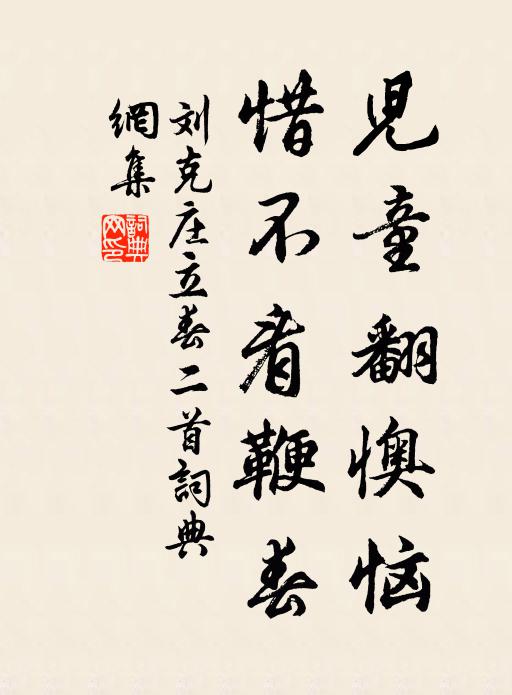 児童翻懊恼
惜不看鞭春
刘克庄立春二首詞典
網集
詞典
网印